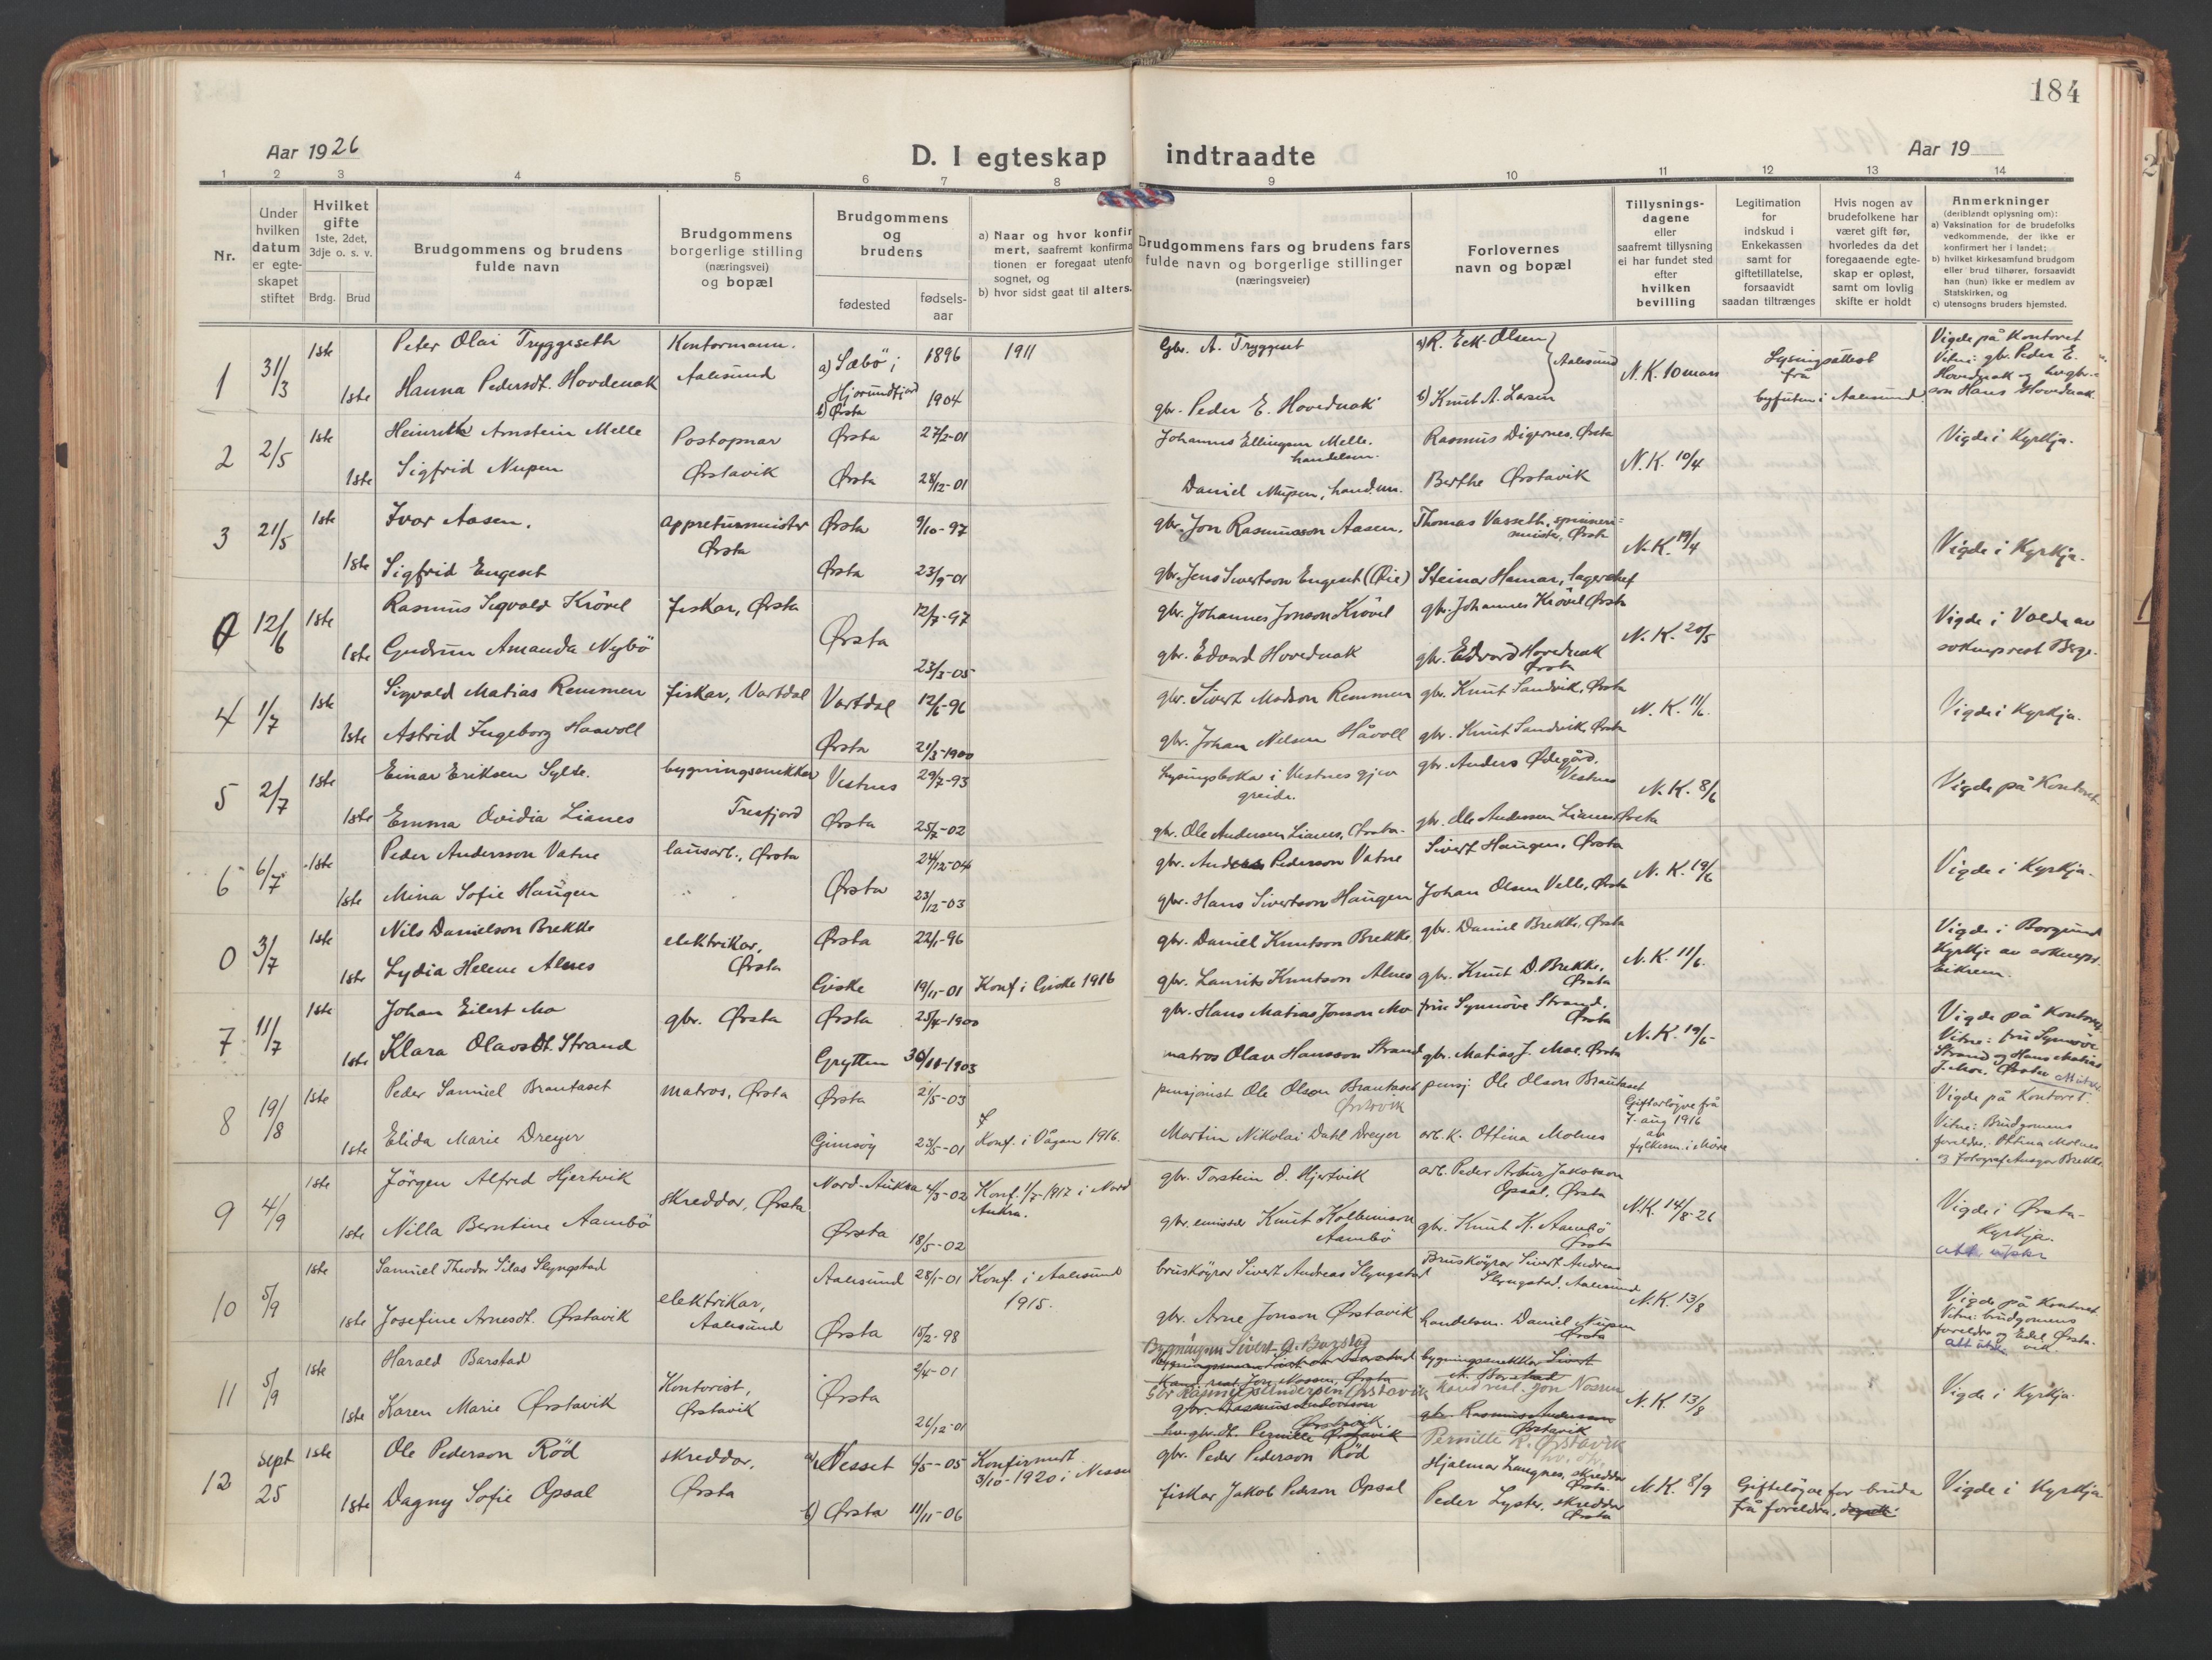 184
Aar 1926
D. I egteskap indtraadte
Aar 19
1 2 3 4 5 6 7 8 9 10 11 12 13 14
Nr.
Under hvilken datum er egte-skapet stiftet
Hvilket gifte 1ste, 2det, 3dje o. s. v.
Brdg. Brud
Brudgommens og brudens fulde navn
Brudgommens borgerlige stilling (næringsvei) og bopæl
Brudgommens og brudens
fødested
fødsels-aar
a) Naar og hvor konfir
mert, saafremt konfirma
tionen er foregaat utenfo
sognet, og
b) hvor sidst gaat til alters.
Brudgommens fars og brudens fars
fulde navn og borgerlige stillinger
(næringsveier)
Forlovernes navn og bopæl
Tillysnings-dagene eller saafremt tillysning ei har fundet sted efter hvilken bevilling
Legitimation for indskud i Enkekassen samt for giftetillatelse, forsaavidt saadan tiltrænges
Hvis nogen av brudefolkene har været gift før, hvorledes da det foregaaende egte-skap er opløst, samt om lovlig skifte er holdt
Anmerkninger
(deriblandt oplysning om):
a) Vaksination for de brudefolks vedkommende, der ikke er konfirmert her i landet;
b) hvilket kirkesamfund brudgom eller brud tilhører, forsaavidt han (hun) ikke er medlem av Statskirken, og
c) utensogns bruders hjemsted.
1 31/3 1ste Peter Olai Tryggeseth Kontormann. a) Sæbö i Hjörundfjord 1896 1911 Gbr. A. Tryggeset a) R. Eck-Olsen Aalesund N.K. 10 mars Lysingsattest frå byfuten i Aalesund Vigde på Kontoret
1ste Hanna Pedersdt. Hovdenak Aalesund b) Ørsta 1904 gbr. Peder E. Hovdenak b) Knut A. Vitne: gbr. Peder E. Hovdenak og Hans Hovdenak
2 2/5 1ste Heinrik Arnstein Melle Postopnar Ørsta 27/2-01 Johannes Ellingsen Melle. handelsm. Rasmus Digernes, Ørsta N.K. 10/4 Vigde i Kyrkja.
1ste Sigfrid Nupen Ørstavik Ørsta 28/12-01 Daniel Nupen, hand.m. Berthe Ørstavik
3 21/5 1ste Ivar Aasen. appreturmeister Ørsta 9/10-97 gbr. Jon Rasmusson Aasen. Thomas Vasseth, spinneri-meister, Ørsta N.K. 19/4 Vigde i Kyrkja.
1ste Sigfrid Engeset Ørsta Ørsta 23/9-01 gbr. Jens Sivertson Engeset (Øie) Steinar Hamar, lagersjef
0 12/6 1ste Rasmus Sigvald Krövel fiskar, Ørsta Ørsta 12/7-97 gbr. Johannes Jonson Krövel gbr. Johannes Krövel Ørsta N.K. 20/5 Vigde i Volda av sokneprest Berge.
1ste Gudrun Amanda Nybö 23/3-05 gbr. Edvard Hovdenak gbr. Edvard Hovdenak Ørsta
4 1/7 1ste Sigvald Matias Remmen fiskar, Vartdal Vartdal 12/6-96 gbr. Sivert Madson Remmen gbr. Knut Sandvik, Ørsta N.K. 11/6. Vigde i Kyrkja.
1ste Astrid Ingeborg Haavoll Ørsta 21/3-1900 gbr. Johan Nilsen Håvoll gbr. Knut Sandvik, Ørsta
5 2/7 1ste Einar Eriksen Sylte. bygningssnekkar Vestnes 29/7-93 Lysingsboka i Vestnes gjev greide. gbr. Anders Ødegård, Vestnes N.K. 8/6 Vigde på Kontoret
1ste Emma Ovidia Lianes Tresfjord Ørsta 25/7-02 gbr. Ole Andersen Lianes, Ørsta. gbr. Ole Andersen Lianes, Ørsta
6 6/7 1ste Peder Andersson Vatne lausarb., Ørsta Ørsta 24/12-04 gbr. Anders Pederson Vatne Sivert Haugen, Ørsta N.K. 19/6 Vigde i Kyrkja.
1ste Mina Sofie Haugen 23/12-03 gbr. Hans Sivertson Haugen Johan Olsen Velle, Ørsta
0 3/7 1ste Nils Danielson Brekke elektrikar, Ørsta Ørsta 22/1-96 gbr. Daniel Knutson Brekke gbr. Daniel Brekke, Ørsta N.K. 11/6. Vigde i Borgund Kyrkje av soknepr. Eikrem.
1ste Lydia Helene Alnes Giske 19/11-01 Konf i Giske 1916 gbr. Laurits Knutson Alnes gbr. Knut D. Brekke, Ørsta
7 11/7 1ste Johan Eilert Mo gbr. Ørsta Ørsta 25/4-1900 gbr. Hans Matias Jonson Mo fru Synnöve Strand. Ørsta N.K. 19/6 Vigde på Kontoret
1ste Klara Olavsdt. Strand Grytten 30/11-1903 matros Olav Hansson Strand gbr. Matias J. Moe, Ørsta Vitne: fru Synnöve Strand og Hans Matias J. Moe. Ørsta
8 19/8 1ste Peder Samuel Brautaset matros, Ørsta Ørsta 2/5-03 pensjonist Ole Olson Brautaset Ørstavik pensj. Ole Olson Brautaset Giftarlöyve frå 7. aug 1916 av fylkesm. i Möre Vigde på Kontoret.
1ste Elida Marie Dreyer Gimsöy 23/5-01 Konf. i Vågan 1916. Martin Nikolai Dahl Dreyer arb.k. Ottina Molnes Vitne: Brudgomens foreldre, Ottina Molnes og fotograf Ansgar Brekke
9 4/9 1ste Jörgen Alfred Hjertvik skreddar, Ørsta Nord-Aukra 4/3-02 Konf. 1/7-1917 i Nord Aukra. gbr. Torstein O. Hjertvik arb. Peder Artur Jakobson Opsal, Ørsta N.K. 14/8-26 Vigde i Ørsta-Kyrkja.
1ste Nilla Berntine Aambö Ørsta 18/5-02 gbr. Knut Kolbeinson Aambö gbr. Knut K. Aambö Ørsta
10 5/9 1ste Samuel Theodor Silas Slyngstad elektrikar, Aalesund Aalesund 28/1-01 Konf. i Aalesund 1915. brusköyrar Sivert Andreas Slyngstad Brusköyrar Sivert Andreas Slyngstad, Aalesund N.K. 13/8 Vigde på Kontoret
1ste Josefine Arnesdt. Ørstavik Ørsta 15/2-98 gbr. Arne Jonson Ørstavik handelsm. Daniel Nupen Ørsta Vitne: brudgomens foreldre og Edel Ørstavik.
11 5/9 1ste Harald Barstad Kontorist, Ørstavik Ørsta 2/4-01 Sivert A. Barstad bygningssnekkar Sivert A. Barstad N.K. 13/8 Vigde i Kyrkja.
1ste Karen Marie Ørstavik 26/12-01 Kand. real. Jon Nossen, Ørsta Gbr Rasmus Andersen Ørstavik kand real. Jon Nossen
gbr. Rasmus Anderson Ørstavik. gbr. Rasmus Anderson Ørstavik
Pernille Ørstavik Pernille R. Ørstavik
12 Sept 25 1ste Ole Pederson Röd skreddar, Ørsta a) Nesset 4/5-05 Konfirmert 3/10-1920 i Nesse gbr. Peder Pederson Röd Hjalmar Langnes, skreddar Ørsta. N.K. 8/9 Giftelöyve for bruda frå foreldra. Vigde i Kyrkja
1ste Dagny Sofie Opsal b) Ørsta 11/11-06 fiskar Jakob Pederson Opsal Peder Lyster, skreddar Ørsta